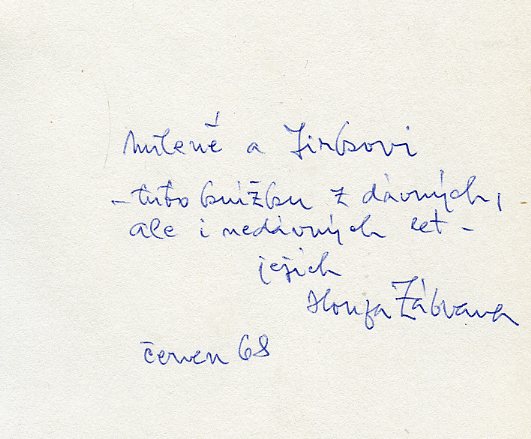 Mileně a Jirkovi
– tuto knížku z dávných,
ale i nedávných let –
jejich
Honza Zábrana
červen 68